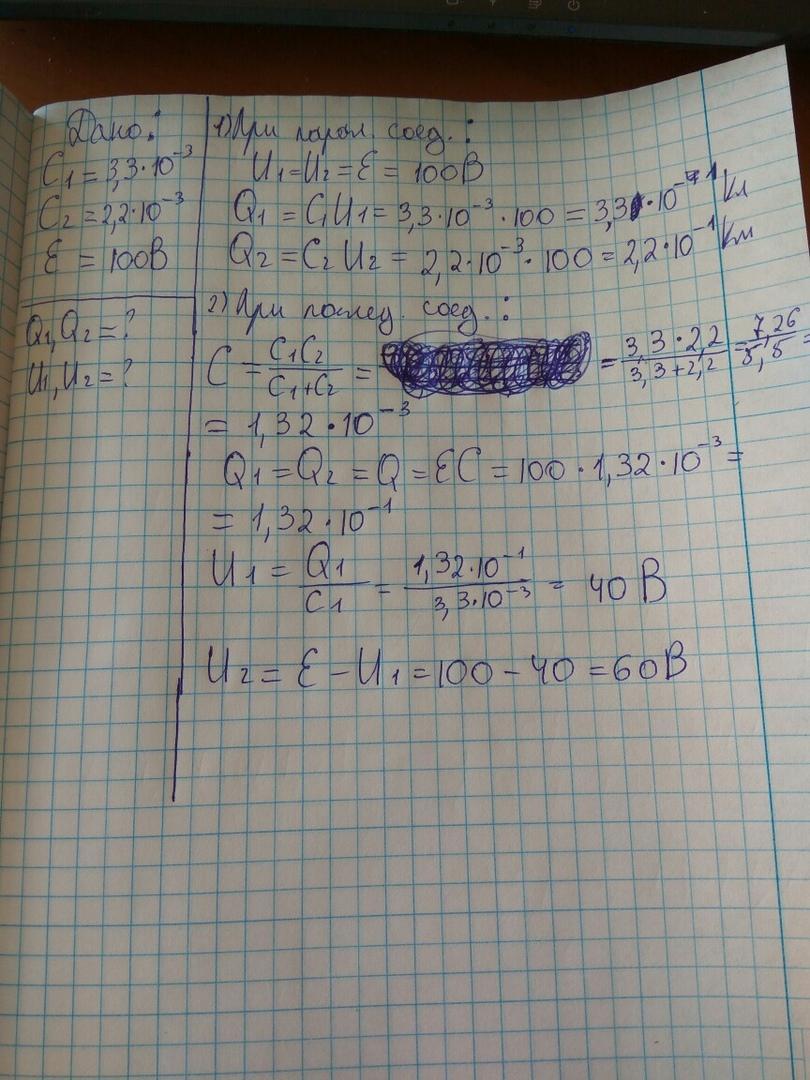 Дано:
C₁ = 3,3·10⁻³
C₂ = 2,2·10⁻³
Ɛ = 100В
Q₁, Q₂ = ?
U₁, U₂ = ?
1) При парал. соед. :
U₁ = U₂ = Ɛ = 100В
Q₁ = C₁U₁ = 3,3·10⁻³ · 100 = 3,3·10⁻¹ Кл
Q₂ = C₂U₂ = 2,2·10⁻³ · 100 = 2,2·10⁻¹ Кл
2) При послед. соед. :
C = C₁C₂ / C₁+C₂ = = 3,3·2,2 / 3,3+2,2 = 7,26 / 5,5 =
= 1,32·10⁻³
Q₁ = Q₂ = Q = ƐC = 100·1,32·10⁻³ =
= 1,32·10⁻¹
U₁ = Q₁ / C₁ = 1,32·10⁻¹ / 3,3·10⁻³ = 40 В
U₂ = Ɛ − U₁ = 100 − 40 = 60В